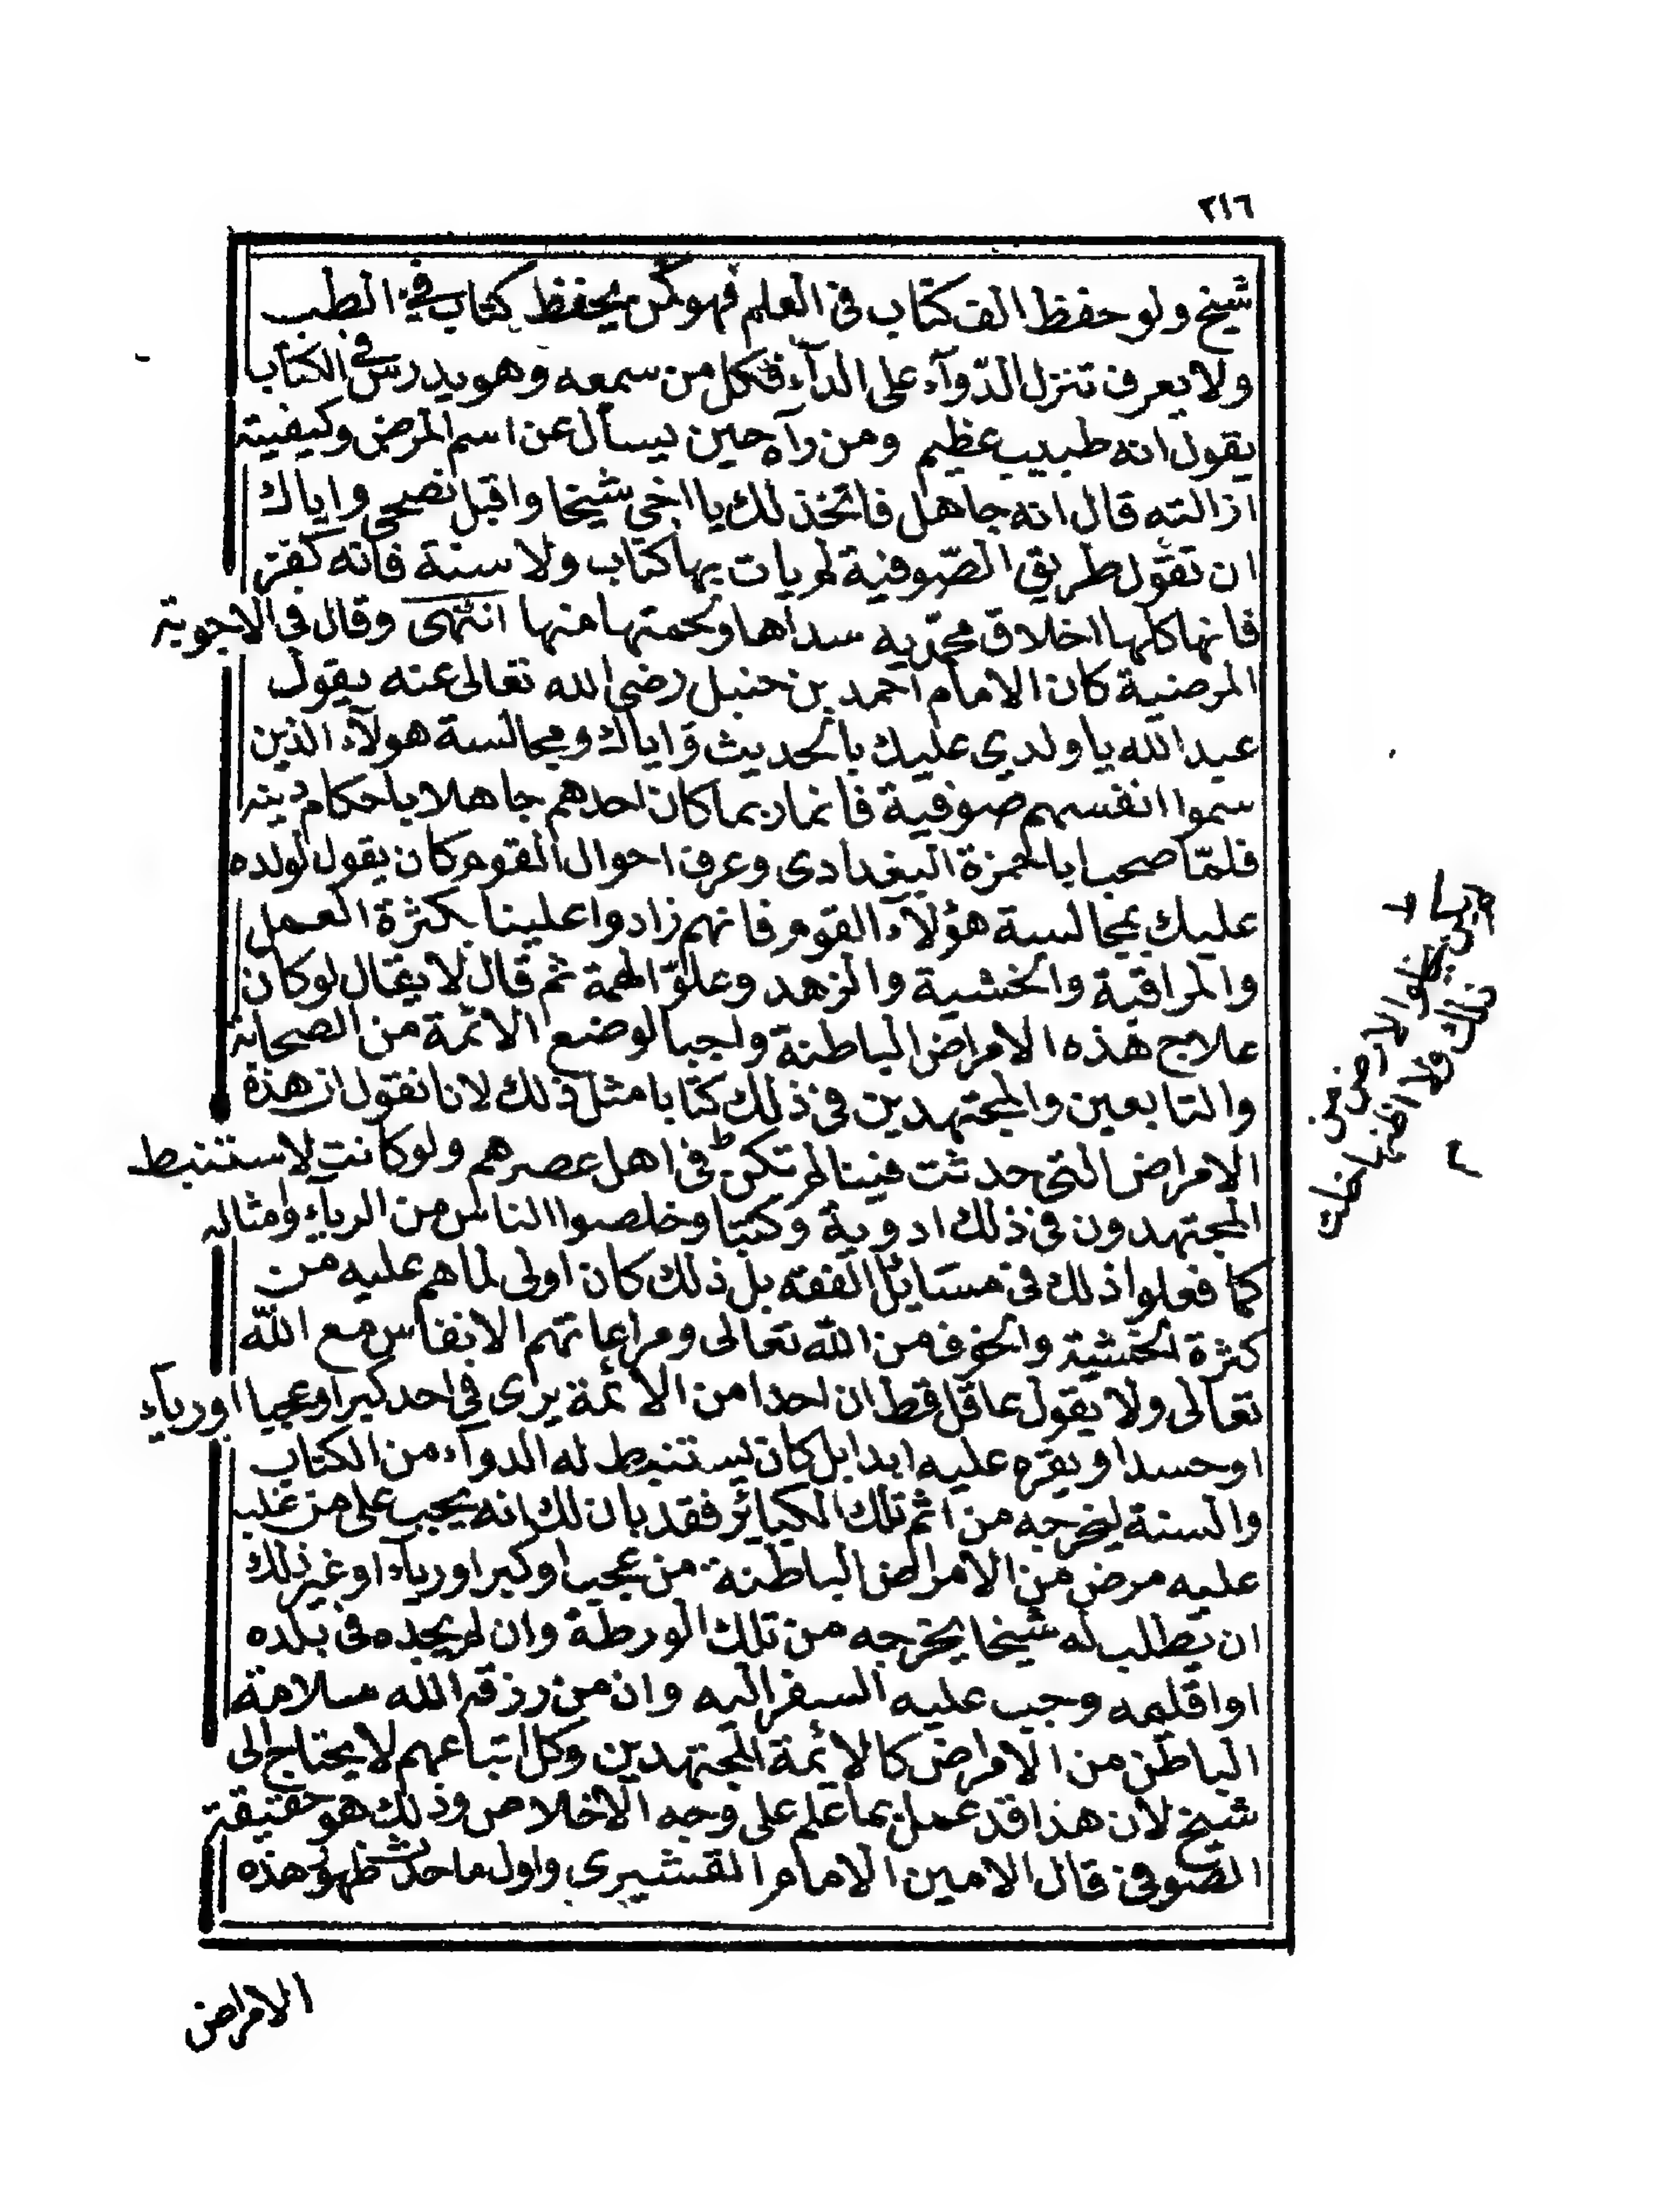 ٣١٦
شيخ ولو حفظ الف كتاب فى العلم فهو كمن يحفظ كتاب في الطب
ولا يعرف تنزل الدّوآء على الدآء فكل من سمعه وهو يدرس في الكتاب
يقول انه طبيب عظيم ومن رآه حين يسأل عن اسم المرض وكيفيته
ازالته قال انه جاهل فاتخذ لك يا اخي شيخا واقبل نصحي واياك
ان تقول طريق الصّوفية لم يات بها كتاب ولا سنة فانه كفر
فانها كلها اخلاق محمّديه سداها ولحمتها منها انتهى وقال فى الاجوبة
المرضية كان الامام احمد بن حنبل رضي الله تعالى عنه يقول
عبد الله يا ولدي عليك بالحديث واياك ومجالسة هولآء الذين
سموا انفسهم صوفية فانما ربما كان احدهم جاهلا باحكام دينه
فلمّا صحب ابا حمزة البغدادى وعرف احوال القوم كان يقول لولده
عليك بمجالسة هؤلآء القوم فانهم زادوا علينا بكثرة العمل
والمراقبة والخشية والزهد وعلوّ الهمة ثم قال لا يقال لو كان
علاج هذه الامراض الباطنة واجبا لوضع الائمة من الصحابة
والتابعين والمجتهدين فى ذلك كتابا مثل ذلك لانا نقول ان هذه
الامراض التى حدثت فينا لم تكن فى اهل عصرهم ولو كانت لاستنبط
المجتهدون فى ذلك ادوية وكتبا وخلصوا الناس من الرياء وامثاله
كما فعلوا ذلك فى مسَائل الفقه بل ذلك كان اولى لما هم عليه من
كثرة الخشية والخوف من الله تعالى ومراعاتهم الانفاس مع الله
تعالى ولا يقول عاقل قط ان احدا من الائمة يرى في احد كبرا او عجبا او رياء
او حسدا ويقره عليه ابدا بل كان يستنبط له الدوآء من الكتاب
والسنة ليخرجه من اثم تلك الكبائر فقد بان لك انه يجب على من غلب
عليه مرض من الامراض الباطنة من عجب او كبر او رياء او غير ذلك
ان يطلب له شيخا يخرجه من تلك الورطة وان لم يجده فى بلده
او اقليمه وجب عليه السفر اليه وان من رزقه الله سلامة
الباطن من الامراض كالائمة المجتهدين وكل اتباعهم لا يحتاج الى
شيخ لان هذا قد عمل بما علم على وجه الاخلاص وذلك هو حقيقة
الصوفى قال الامين الامام القشيرى واول ما حدث ظهور هذه
الامراض